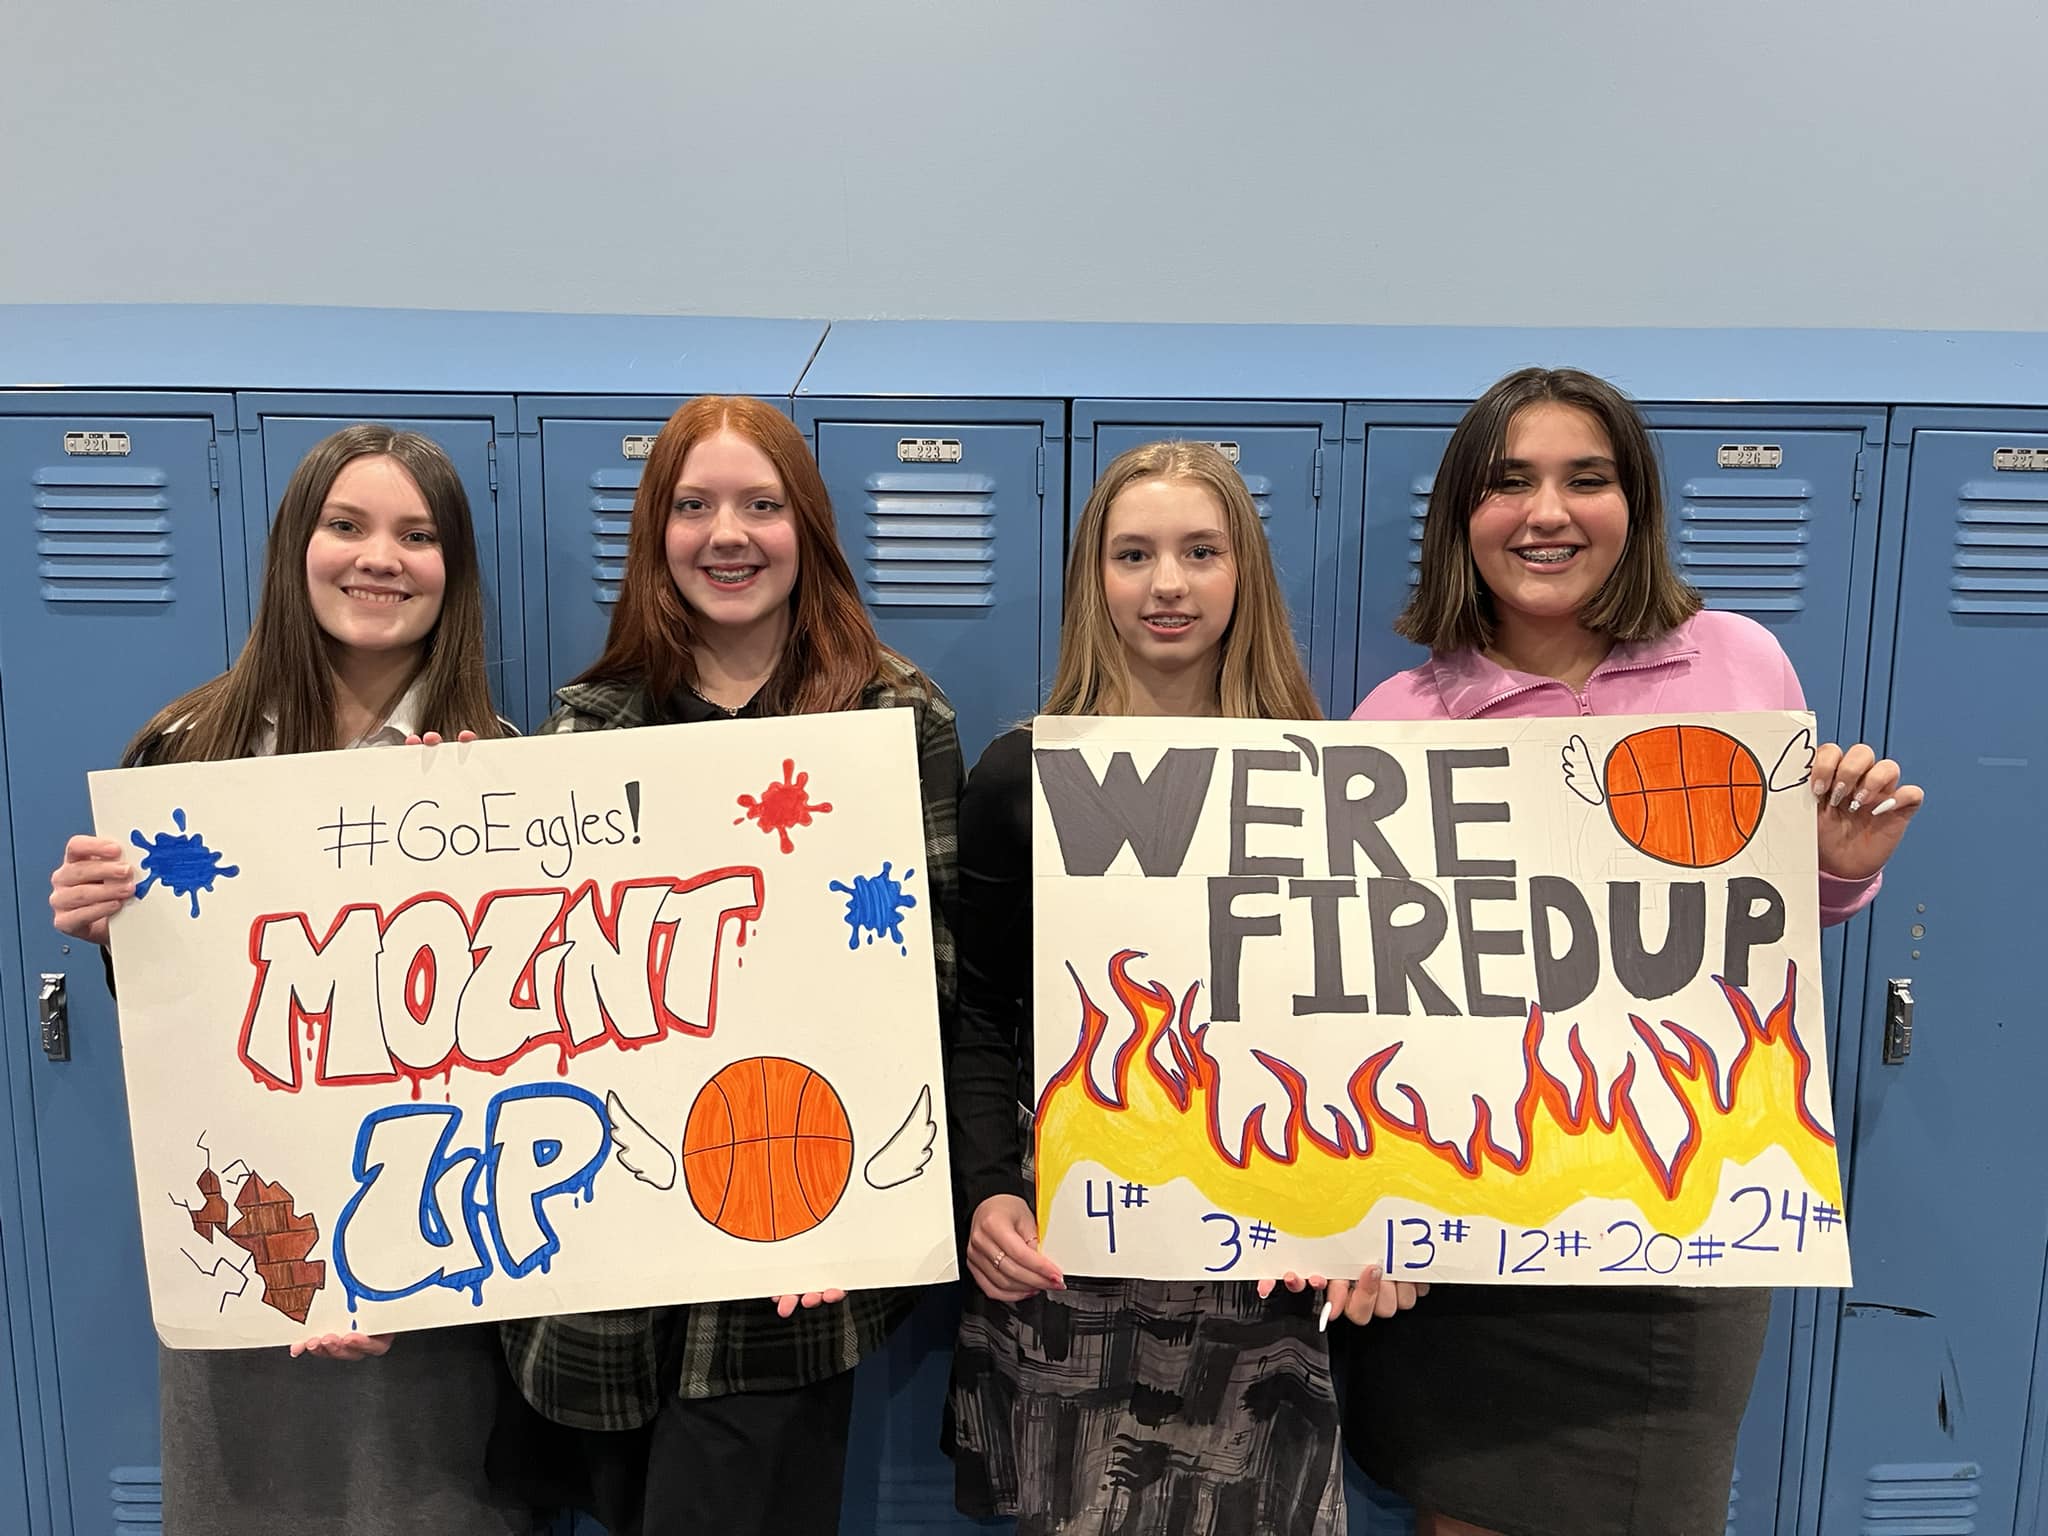 220
223
226
227
#GoEagles!
MOUNT
UP
WE'RE
FIRED UP
4# 3# 13# 12# 20# 24#